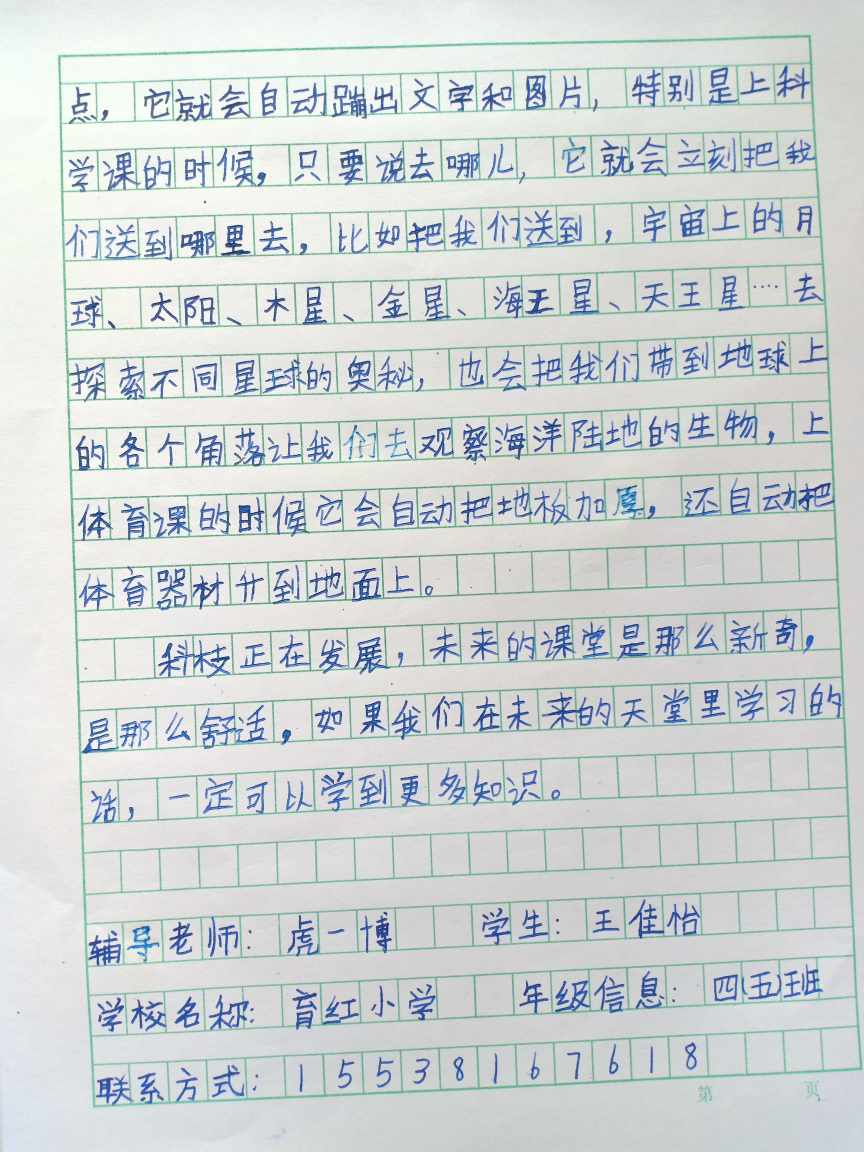 点，它就会自动蹦出文字和图片，特别是上科
学课的时候，只要说去哪儿，它就会立刻把我
们送到哪里去，比如把我们送到，宇宙上的月
球、太阳、木星、金星、海王星、天王星…去
探索不同星球的奥秘，也会把我们带到地球上
的各个角落让我们去观察海洋陆地的生物，上
体育课的时候它会自动把地板加厚，还自动把
体育器材升到地面上。
科枝正在发展，未来的课堂是那么新奇，
是那么舒适，如果我们在未来的天堂里学习的
话，一定可以学到更多知识。
辅导老师：虎一博 学生：王佳怡
学校名称：育红小学 年级信息：四(五)班
联系方式：15538167618
第 页